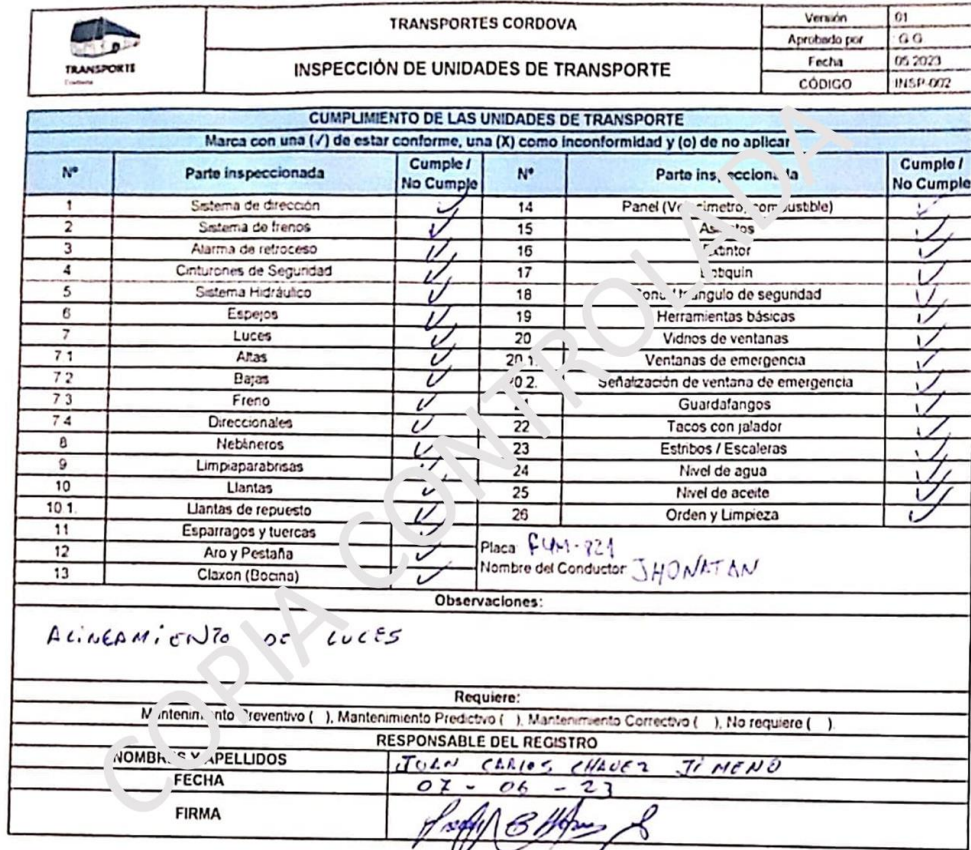 TRANSPORTE
TRANSPORTES CORDOVA
INSPECCIÓN DE UNIDADES DE TRANSPORTE
Versión 01
Aprobado por G.G.
Fecha 05 2023
CÓDIGO INSP-002
CUMPLIMIENTO DE LAS UNIDADES DE TRANSPORTE
Marca con una (✓) de estar conforme, una (X) como inconformidad y (o) de no aplicar
N° Parte inspeccionada Cumple / No Cumple N° Parte inspeccionada Cumple / No Cumple
1 Sistema de dirección ✓ 14 Panel (Velocímetro, combustible) ✓
2 Sistema de frenos ✓ 15 Asientos ✓
3 Alarma de retroceso ✓ 16 Extintor ✓
4 Cinturones de Seguridad ✓ 17 Botiquín ✓
5 Sistema Hidráulico ✓ 18 triángulo de seguridad ✓
6 Espejos ✓ 19 Herramientas básicas ✓
7 Luces ✓ 20 Vidrios de ventanas ✓
7.1 Altas ✓ 20.1. Ventanas de emergencia ✓
7.2 Bajas ✓ 20.2. Señalización de ventana de emergencia ✓
7.3 Freno ✓ 21 Guardafangos ✓
7.4 Direccionales ✓ 22 Tacos con jalador ✓
8 Nebлineros ✓ 23 Estribos / Escaleras ✓
9 Limpiaparabrisas ✓ 24 Nivel de agua ✓
10 Llantas ✓ 25 Nivel de aceite ✓
10.1. Llantas de repuesto ✓ 26 Orden y Limpieza ✓
11 Esparragos y tuercas ✓
12 Aro y Pestaña ✓
13 Claxon (Bocina) ✓
Placa F4M-821
Nombre del Conductor: JHONATAN
Observaciones:
ALINEAMIENTO DE LUCES
Requiere:
Mantenimiento Preventivo ( ), Mantenimiento Predictivo ( ), Mantenimiento Correctivo ( ), No requiere ( ).
RESPONSABLE DEL REGISTRO
NOMBRES Y APELLIDOS JUAN CARLOS CHAVEZ JIMENO
FECHA 07 - 06 - 23
FIRMA
COPIA CONTROLADA